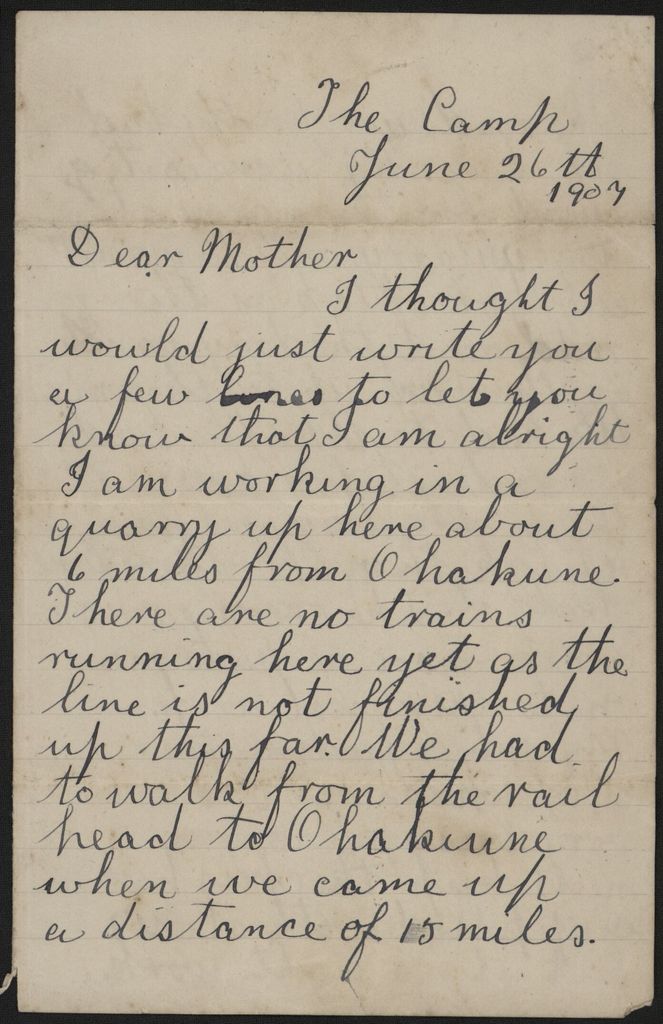 The Camp
June 26th
1907
Dear Mother
I thought I
would just write you
a few lines to let you
know that I am alright
I am working in a
quarry up here about
6 miles from Ohakune.
There are no trains
running here yet as the
line is not finished
up this far. We had
to walk from the rail
head to Ohakuune
when we came up
a distance of 15 miles.